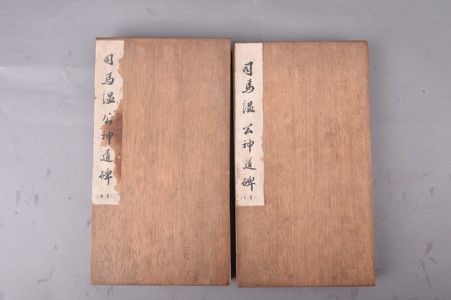 司马温公神道碑
司马温公神道碑